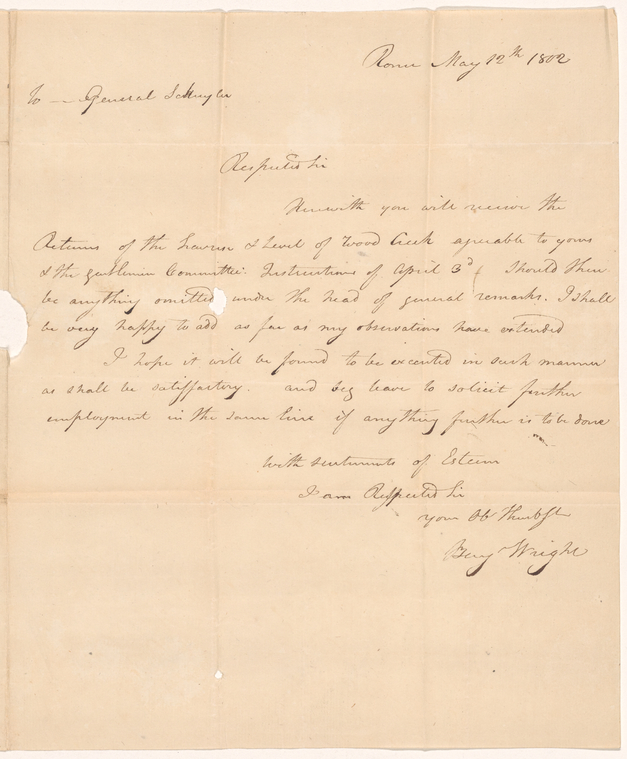 Rome May 12th 1802
To - General Schuyler
Respected Sir
Herewith you will receive the
Returns of the Traverse & Level of Wood Creek agreable to yours
& the gentlemen Committee Instructions of April 3d Should there
be anything omitted under the head of general remarks. I shall
be very happy to add as far as my observations have extended
I hope it will be found to be executed in such manner
as shall be satisfactory. and beg leave to solicit further
employment in the same line if anything further is to be done
With sentiments of Esteem
I am Respected Sir
your Ob Humb St
Benj Wright